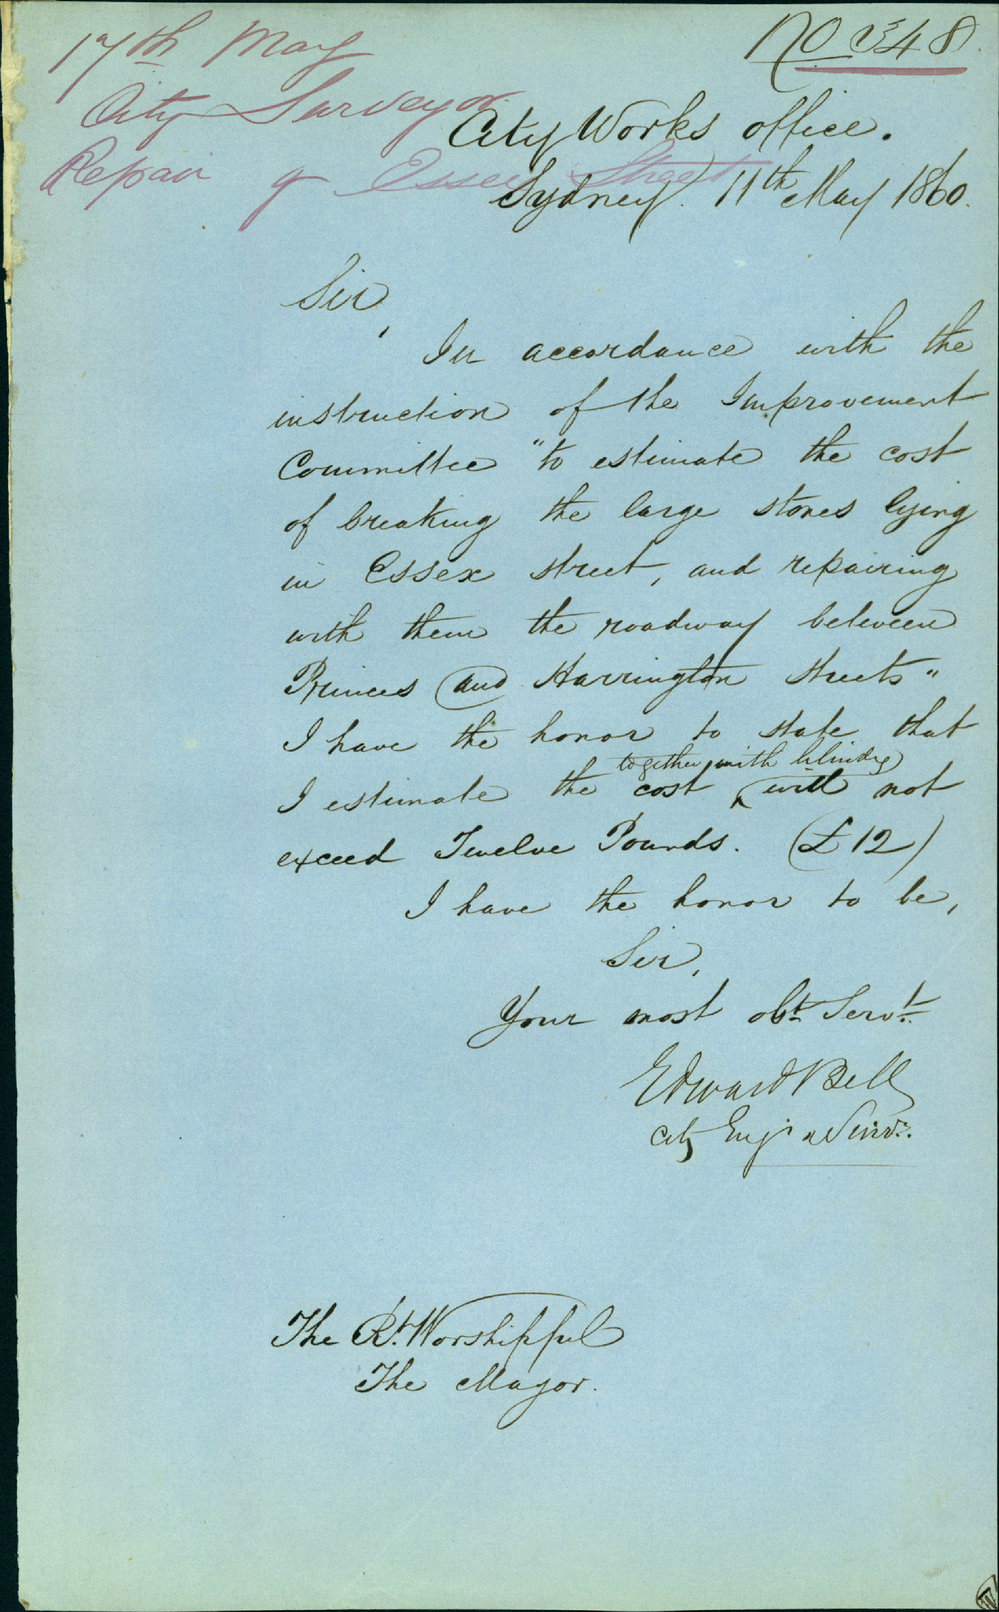 17th May
No 348
City Surveyor
City Works office.
Repair of Essex Street
Sydney. 11th May 1860.
Sir,
In accordance with the
instruction of the Improvement
Committee "to estimate the cost
of breaking the large stones lying
in Essex street, and repairing
with them the roadway between
Princes and Harrington streets"
I have the honor to state that
together with blinding
I estimate the cost ‸ will not
exceed Twelve Pounds. (£12)
I have the honor to be,
Sir,
Your most obt Servt.
Edward Bell
City Engr & Survr.
The Rt. Worshipful
The Mayor.